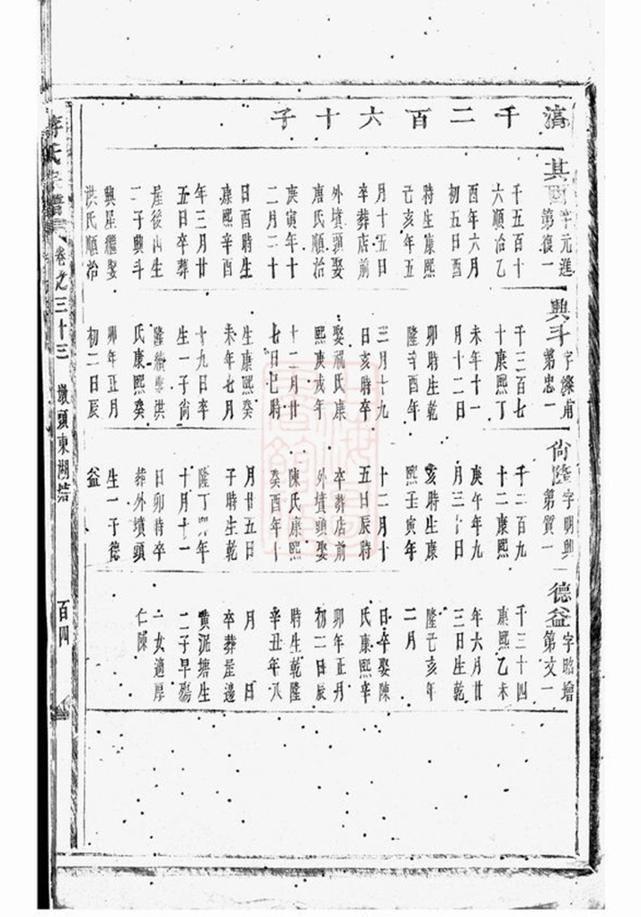 千二百六十子
其 字元進
第復一
千五百十
六順治乙
酉年六月
初五日酉
時生康熙
己亥年五
月十五日
卒葬店前
外墳頭娶
唐氏順治
庚寅年十
二月二十
日酉時生
康熙辛酉
年三月廿
五日卒葬
屋後內生
二子興斗
興星繼娶
洪氏順治
興斗 字燦甫
第忠一
千三百七
十康熙丁
未年十一
月十二日
卯時生乾
隆辛酉年
三月十九
日亥時卒
娶 氏康
熙庚戌年
十一月廿
七日巳時
生康熙癸
未年七月
十九日卒
生一子尙
隆續娶洪
氏康熙癸
卯年正月
初二日辰
尙隆 字明興
第質一
千二百九
十二康熙
庚午年九
月三十日
亥時生康
熙壬寅年
十二月十
五日辰時
卒葬店前
外墳頭娶
陳氏康熙
癸酉年十
月廿五日
子時生乾
隆丁 年
十月十一
日卯時卒
葬外墳頭
生一子德
益
德益 字昭增
第文一
千三十四
康熙乙未
年六月廿
三日生乾
隆己亥年
二月
日卒娶陳
氏康熙辛
卯年正月
初二日辰
時生乾隆
辛丑年八
月 日
卒葬崖邊
黃泥塘生
二子早殤
一女適厚
仁陳
李氏宗譜
卷之三十三
墩頭東湖
百四